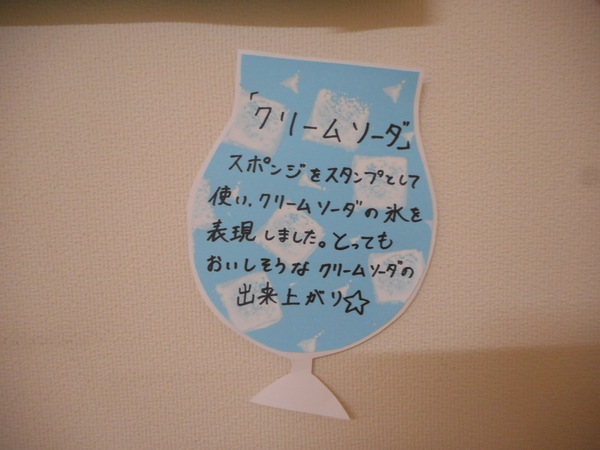 「クリームソーダ」
スポンジをスタンプとして
使い、クリームソーダの氷を
表現しました。とっても
おいしそうなクリームソーダの
出来上がり☆